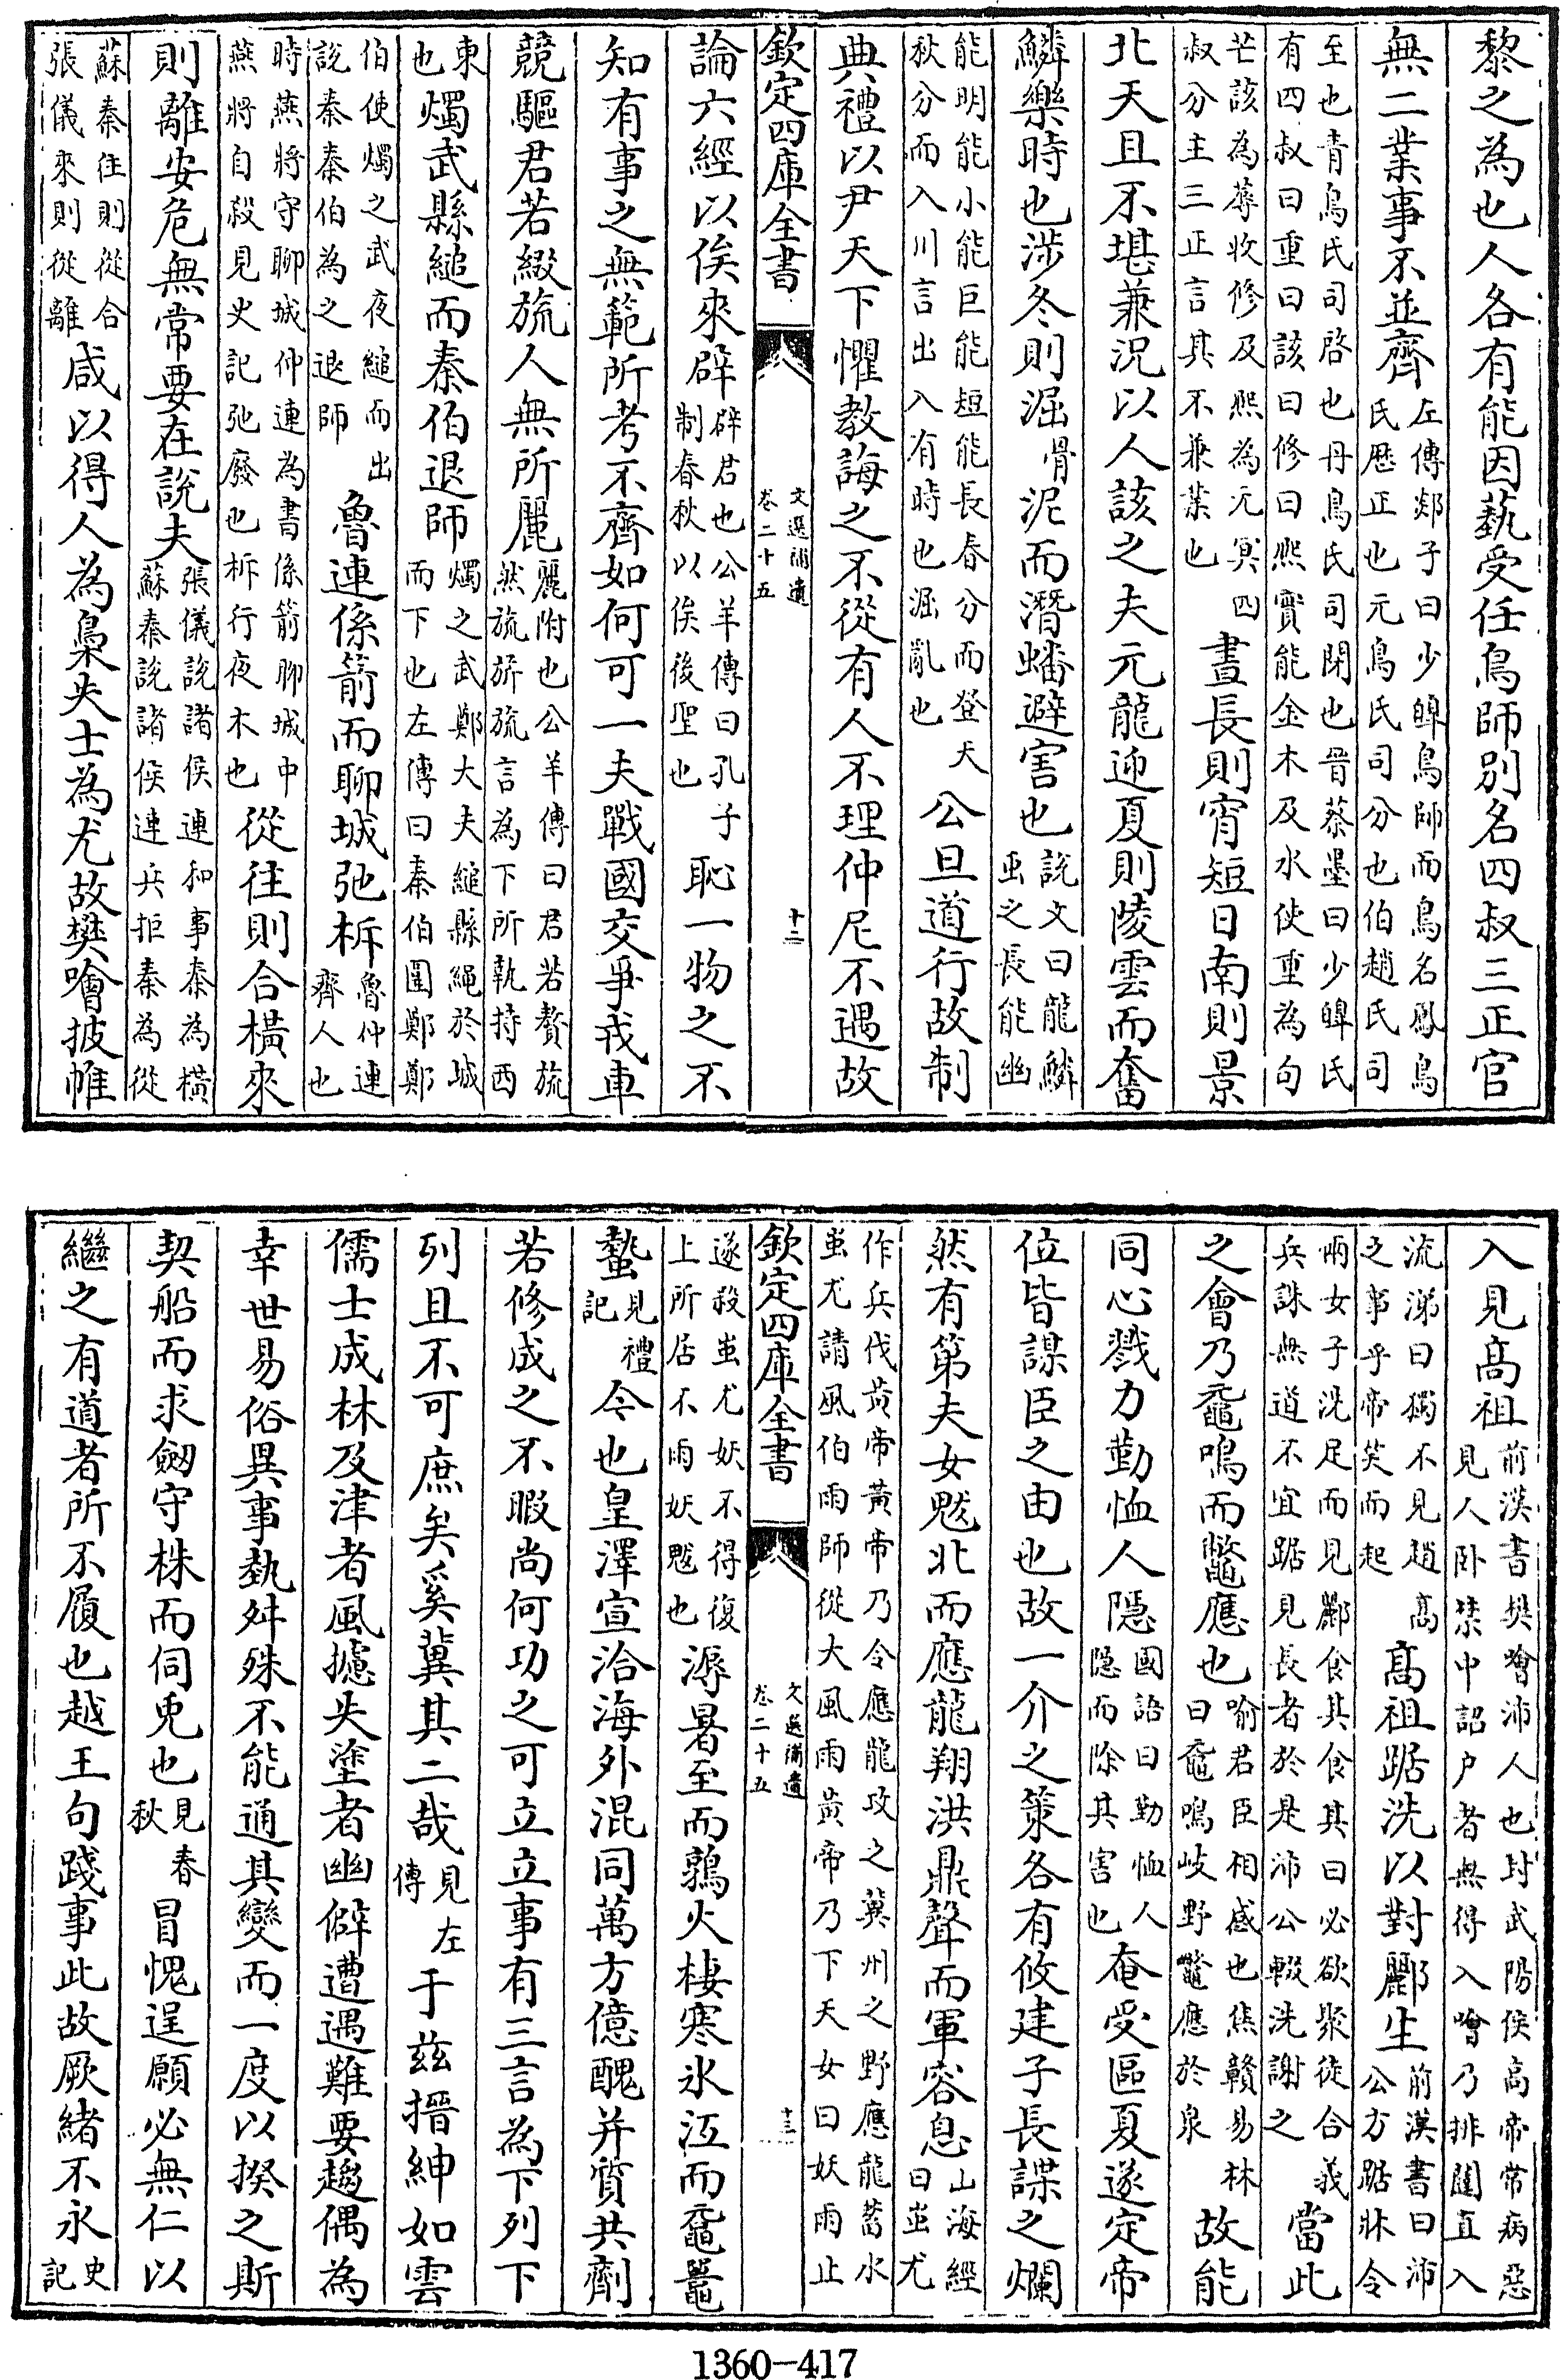 黎之為也人各有能因蓺受任鳥師别名四叔三正官
無二業事不並齊左傳郯子曰少皡鳥師而鳥名鳳鳥氏厯正也元鳥氏司分也伯趙氏司
至也青鳥氏司啓也丹鳥氏司閉也晋蔡墨曰少皡氏有四叔曰重曰該曰修曰熙實能金木及水使重為句
芒該為蓐收修及熙為元冥四叔分主三正言其不兼業也晝長則宵短日南則景
北天且不堪兼況以人該之夫元龍迎夏則陵雲而奮
鱗樂時也涉冬則淈骨泥而潛蟠避害也說文曰龍鱗虫之長能幽
能明能小能巨能短能長春分而登天秋分而入川言出入有時也淈亂也公旦道行故制
典禮以尹天下懼教誨之不從有人不理仲尼不遇故
欽定四庫全書 文選補遺 卷二十五 十二
論六經以俟來辟辟君也公羊傳曰孔子制春秋以俟後聖也恥一物之不
知有事之無範所考不齊如何可一夫戰國交爭戎車
競驅君若綴旒人無所麗麗附也公羊傳曰君若贅旒然旒旂旒言為下所執持西
東也燭武縣縋而秦伯退師燭之武鄭大夫縋縣繩於城而下也左傳曰秦伯圍鄭鄭
伯使燭之武夜縋而出說秦秦伯為之退師魯連係箭而聊城弛柝魯仲連齊人也
時燕將守聊城仲連為書係箭聊城中燕將自殺見史記弛廢也柝行夜木也從往則合橫來
則離安危無常要在說夫張儀說諸侯連和事秦為橫蘇秦說諸侯連兵拒秦為從
蘇秦往則從合張儀來則從離咸以得人為梟失士為尤故樊噲披帷
入見高祖前漢書樊噲沛人也封武陽侯高帝常病惡見人卧禁中詔户者無得入噲乃排闥直入
流涕曰獨不見趙高之事乎帝笑而起高祖踞洗以對酈生前漢書曰沛公方踞牀令
兩女子洗足而見酈食其食其曰必欲聚徒合義兵誅無道不宜踞見長者於是沛公輟洗謝之當此
之會乃黿鳴而鼈應也喻君臣相感也焦贛易林曰黿鳴岐野鼈應於泉故能
同心戮力勤恤人隱國語曰勤恤人隱而除其害也奄受區夏遂定帝
位皆謀臣之由也故一介之策各有攸建子長諜之爛
然有第夫女魃北而應龍翔洪鼎聲而軍容息山海經曰蚩尤
作兵伐黃帝黃帝乃令應龍攻之冀州之野應龍蓄水蚩尤請風伯雨師從大風雨黃帝乃下天女曰妖雨止
欽定四庫全書 文選補遺 卷二十五 十三
遂殺蚩尤妖不得復上所居不雨妖魃也溽暑至而鶉火棲寒氷沍而黿鼉
蟄見禮記今也皇澤宣洽海外混同萬方億醜并質共劑
若修成之不暇尚何功之可立立事有三言為下列下
列且不可庶矣奚冀其二哉見左傳于茲搢紳如雲
儒士成林及津者風攄失塗者幽僻遭遇難要趨偶為
幸世易俗異事埶舛殊不能通其變而一度以揆之斯
契船而求劒守株而伺兎也見春秋冒愧逞願必無仁以
繼之有道者所不履也越王句踐事此故厥緒不永史記
1360-417